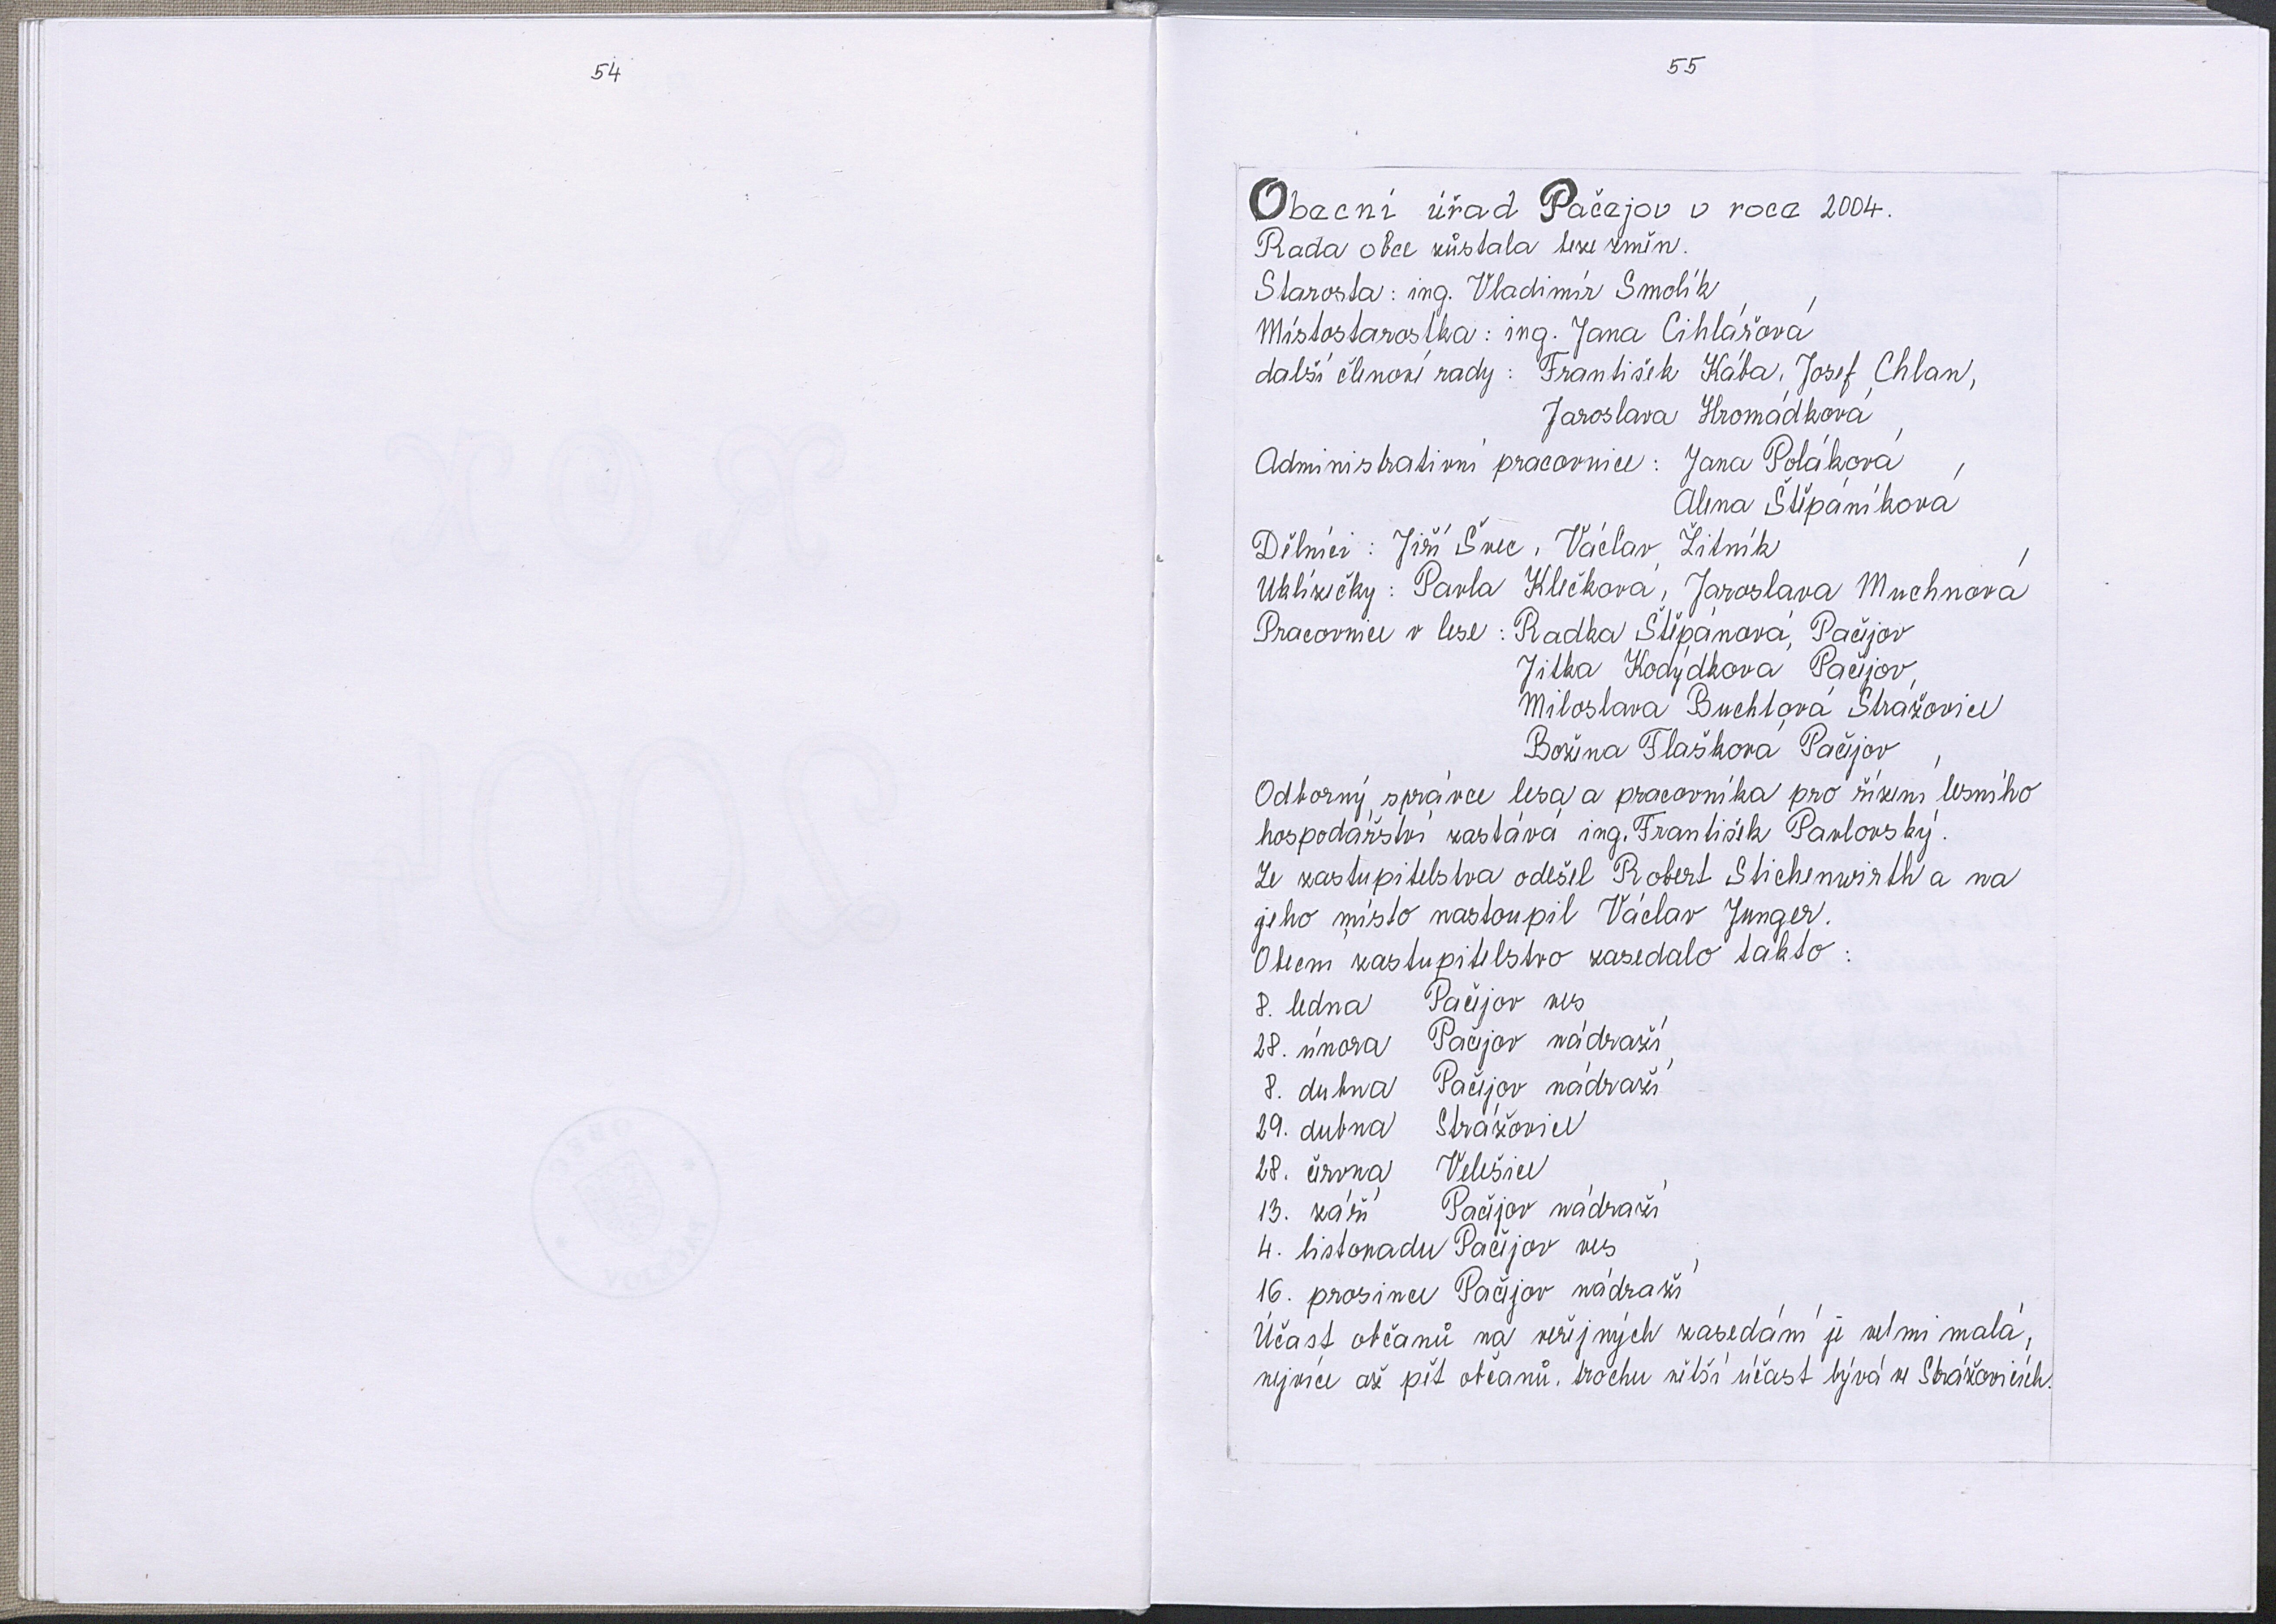 54
55
Obecní úřad Pačejov v roce 2004.
Rada obce zůstala beze změn.
Starosta: ing. Vladimír Smolík
Místostarostka: ing. Jana Cihlářová
další členové rady: František Kába, Josef Chlan,
Jaroslava Hromádková
Administrativní pracovnice: Jana Poláková
Alena Štěpáníková
Dělníci: Jiří Švec, Václav Žitník
Uklízečky: Pavla Klečková, Jaroslava Muchnová
Pracovnice v lese: Radka Štěpánová, Pačejov
Jitka Kodýdková Pačejov,
Miloslava Buchtová Strážovice
Božena Flašková Pačejov
Odborný správce lesa a pracovníka pro řízení lesního
hospodářství zastává ing. František Pavlovský.
Ze zastupitelstva odešel Robert Stichenwirth a na
jeho místo nastoupil Václav Junger.
Obecní zastupitelstvo zasedalo takto:
8. ledna Pačejov ves
28. února Pačejov nádraží
8. dubna Pačejov nádraží
29. dubna Strážovice
28. června Velešice
13. září Pačejov nádraží
4. listopadu Pačejov ves
16. prosince Pačejov nádraží
Účast občanů na veřejných zasedání je velmi malá,
nejvíce až pět občanů, trochu větší účast bývá ve Strážovicích.